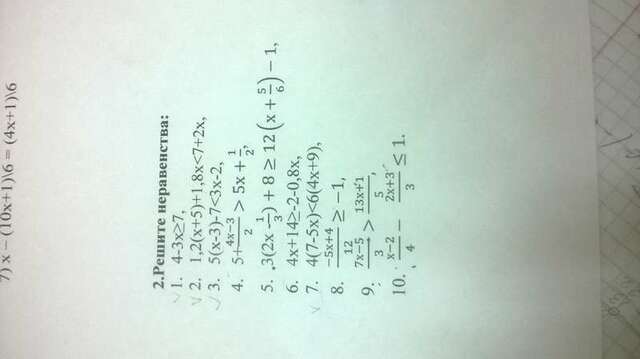 7) x – (10x+1)\6 = (4x+1)\6
2.Решите неравенства:
1. 4-3x≥7,
2. 1,2(x+5)+1,8x<7+2x,
3. 5(x-3)-7<3x-2,
4. 5+\frac{4x-3}{2} > 5x + \frac{1}{2},
5. 3(2x - \frac{1}{3}) + 8 ≥ 12(x + \frac{5}{6}) – 1,
6. 4x+14≥-2-0,8x,
7. 4(7-5x)<6(4x+9),
8. \frac{-5x+4}{12} ≥ -1,
9. \frac{7x-5}{3} > \frac{13x+1}{5},
10. \frac{x-2}{4} - \frac{2x+3}{3} ≤ 1.